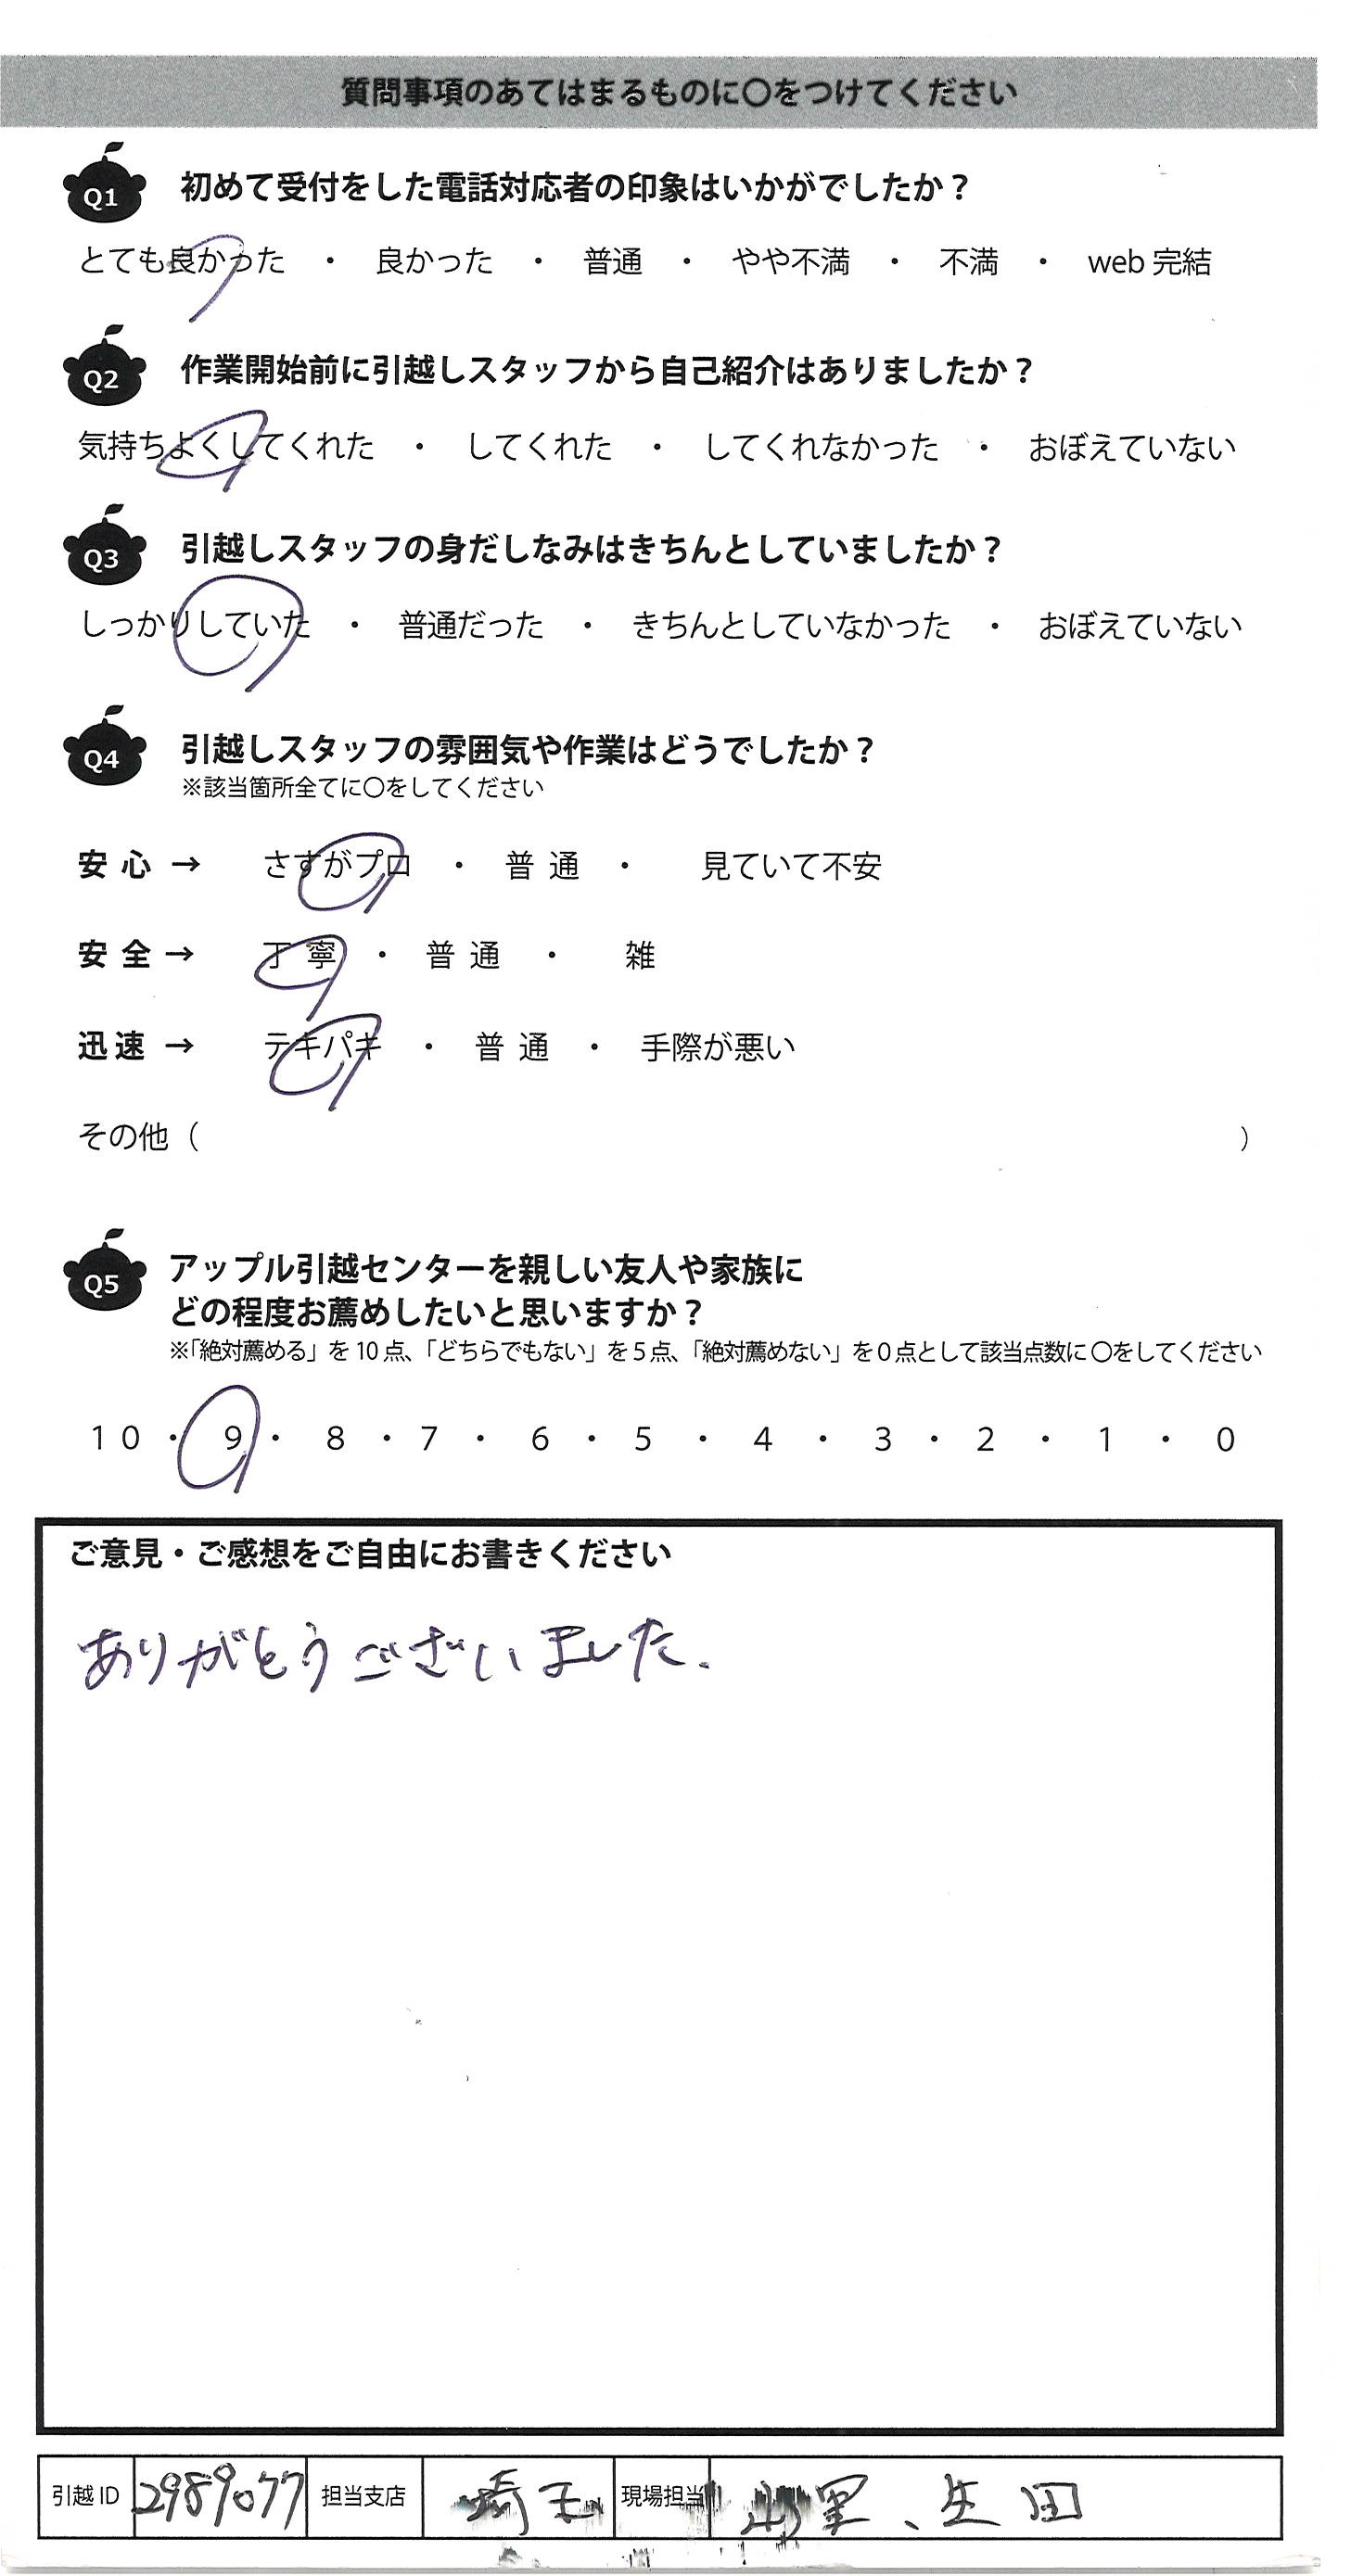 質問事項のあてはまるものに〇をつけてください
Q1 初めて受付をした電話対応者の印象はいかがでしたか？
とても良かった ・ 良かった ・ 普通 ・ やや不満 ・ 不満 ・ web 完結
Q2 作業開始前に引越しスタッフから自己紹介はありましたか？
気持ちよくしてくれた ・ してくれた ・ してくれなかった ・ おぼえていない
Q3 引越しスタッフの身だしなみはきちんとしていましたか？
しっかりしていた ・ 普通だった ・ きちんとしていなかった ・ おぼえていない
Q4 引越しスタッフの雰囲気や作業はどうでしたか？
※該当箇所全てに〇をしてください
安心 → さすがプロ ・ 普通 ・ 見ていて不安
安全 → 丁寧 ・ 普通 ・ 雑
迅速 → テキパキ ・ 普通 ・ 手際が悪い
その他（ ）
Q5 アップル引越センターを親しい友人や家族に
どの程度お薦めしたいと思いますか？
※「絶対薦める」を 10 点、「どちらでもない」を 5 点、「絶対薦めない」を 0 点として該当点数に〇をしてください
10 ・ 9 ・ 8 ・ 7 ・ 6 ・ 5 ・ 4 ・ 3 ・ 2 ・ 1 ・ 0
ご意見・ご感想をご自由にお書きください
ありがとうございました.
引越 ID 2989077 担当支店 埼玉 現場担当 里、生田